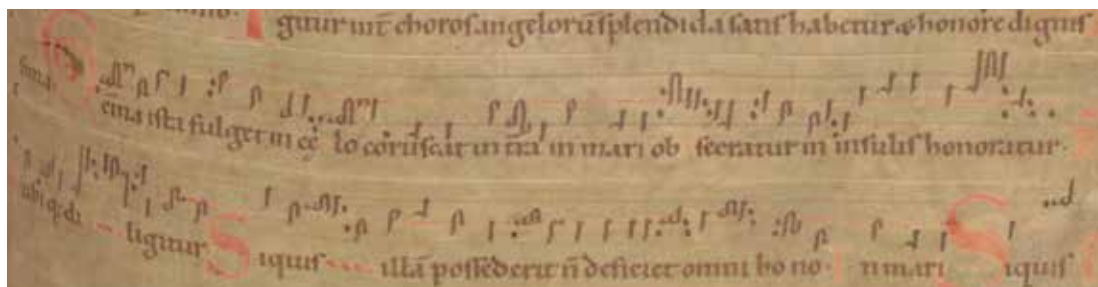 gitur int̃ choros angelorũ splendida satis habetur & honore dignis
Gẽma ista fulget in cęlo coruscat in t̃ra in mari obsecratur in insulis honoratur.
ubiq; di ligitur Siquis illã possederit ñ deficiet omni bono. n mari Siquis